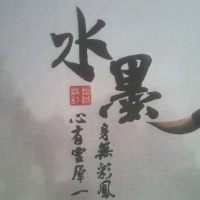 水墨
身無彩鳳
心有靈犀一